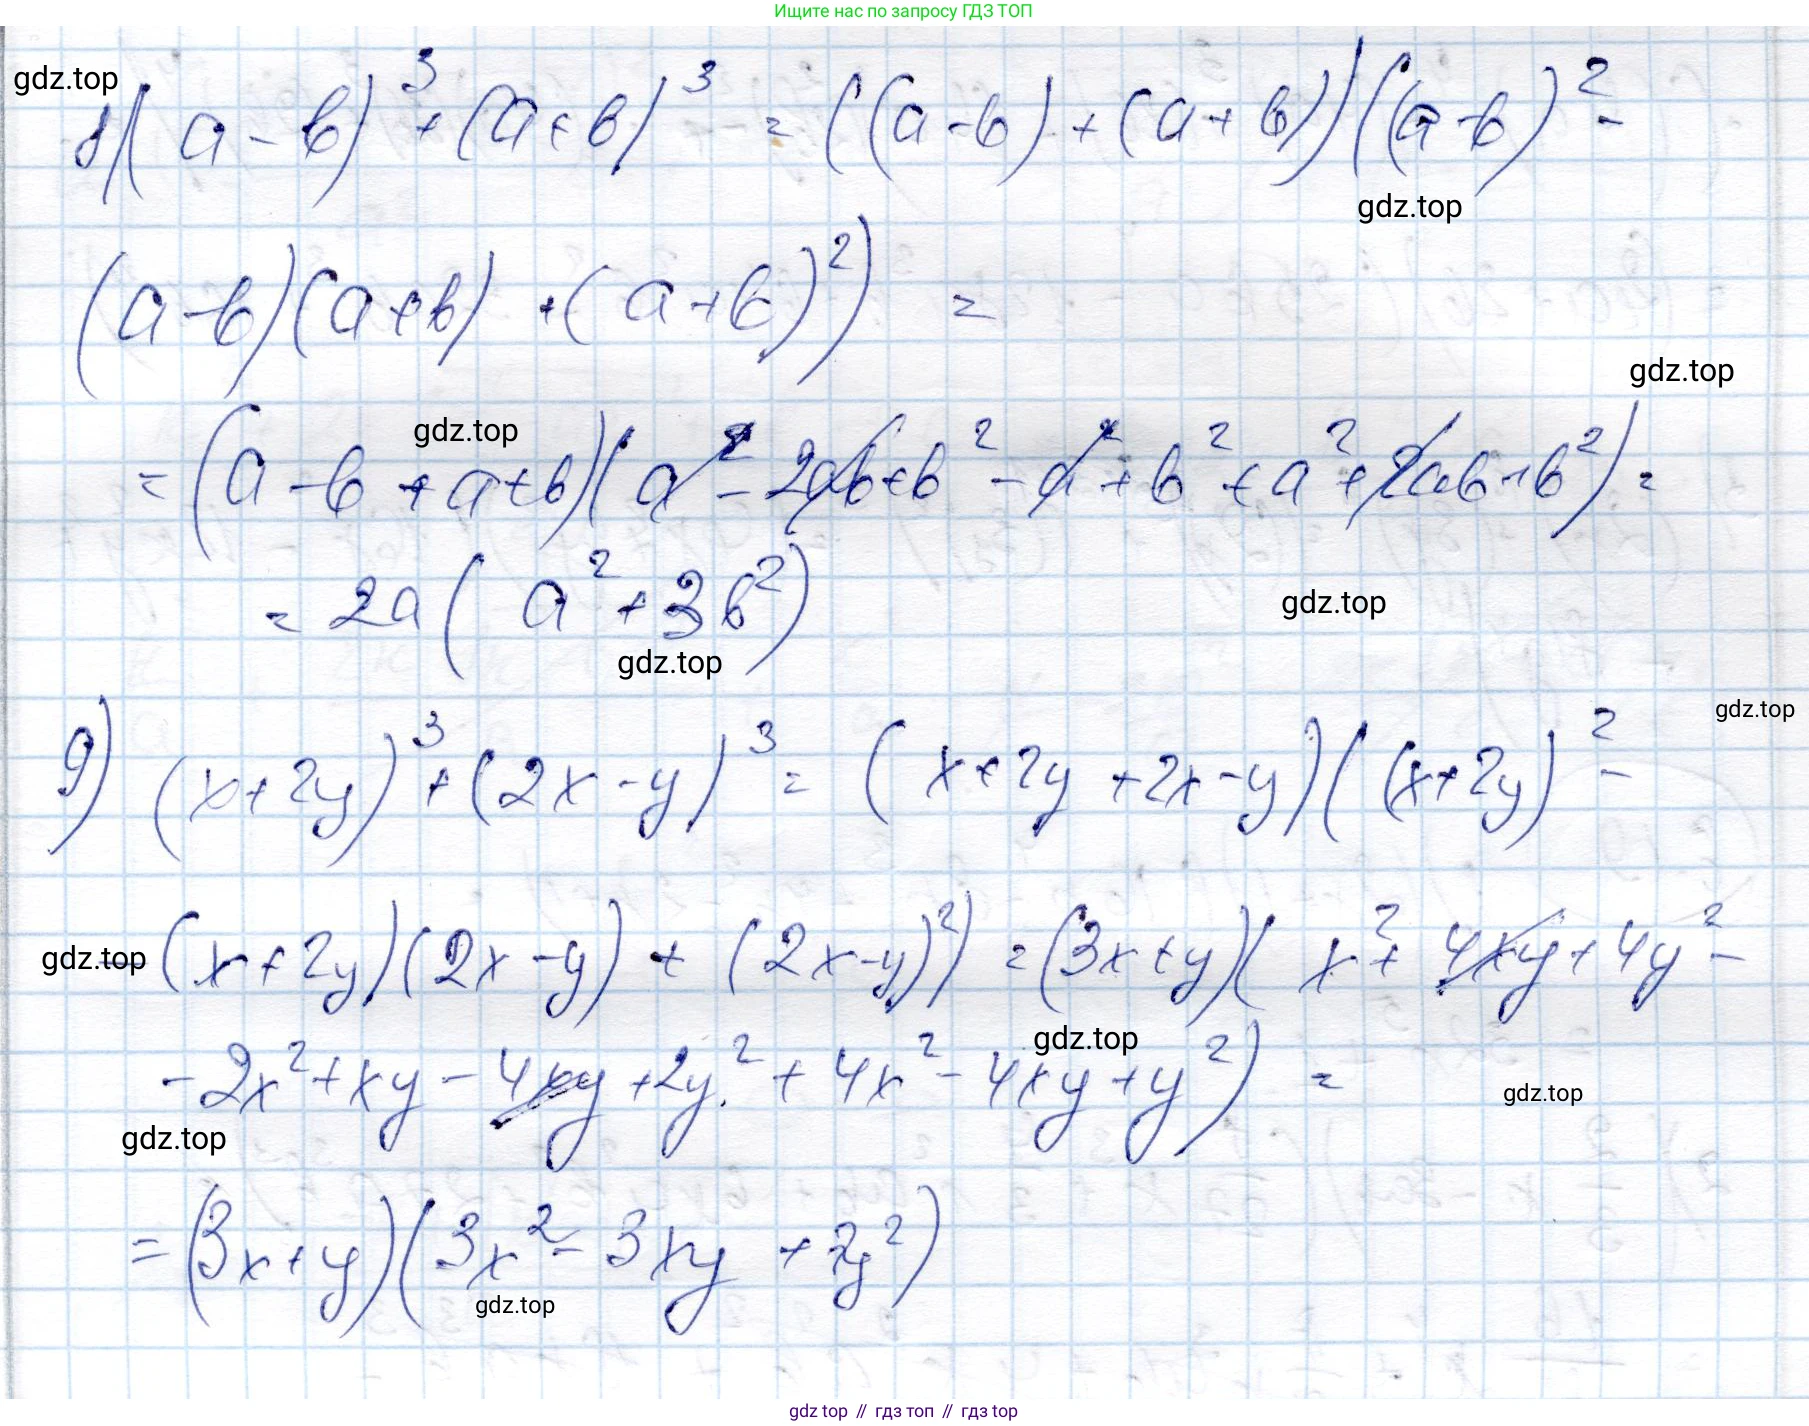 Ищите нас по запросу ГДЗ ТОП
gdz.top
8) (a-b)³+(a+b)³ = ((a-b)+(a+b))((a-b)²-
gdz.top
(a-b)(a+b)+(a+b)²) =
gdz.top
gdz.top
=(a-b+a+b)(a²-2ab+b²-a²+b²+a²+2ab+b²)=
= 2a(a²+3b²)
gdz.top
gdz.top
gdz.top
9) (x+2y)³+(2x-y)³= (x+2y+2x-y)((x+2y)²-
gdz.top
-(x+2y)(2x-y)+(2x-y)²) =(3x+y)(x²+4xy+4y²-
gdz.top
-2x²+xy-4xy+2y²+4x²-4xy+y²) =
gdz.top
gdz.top
=(3x+y)(3x²-3xy+7y²)
gdz.top
gdz top // гдз топ // gdz top